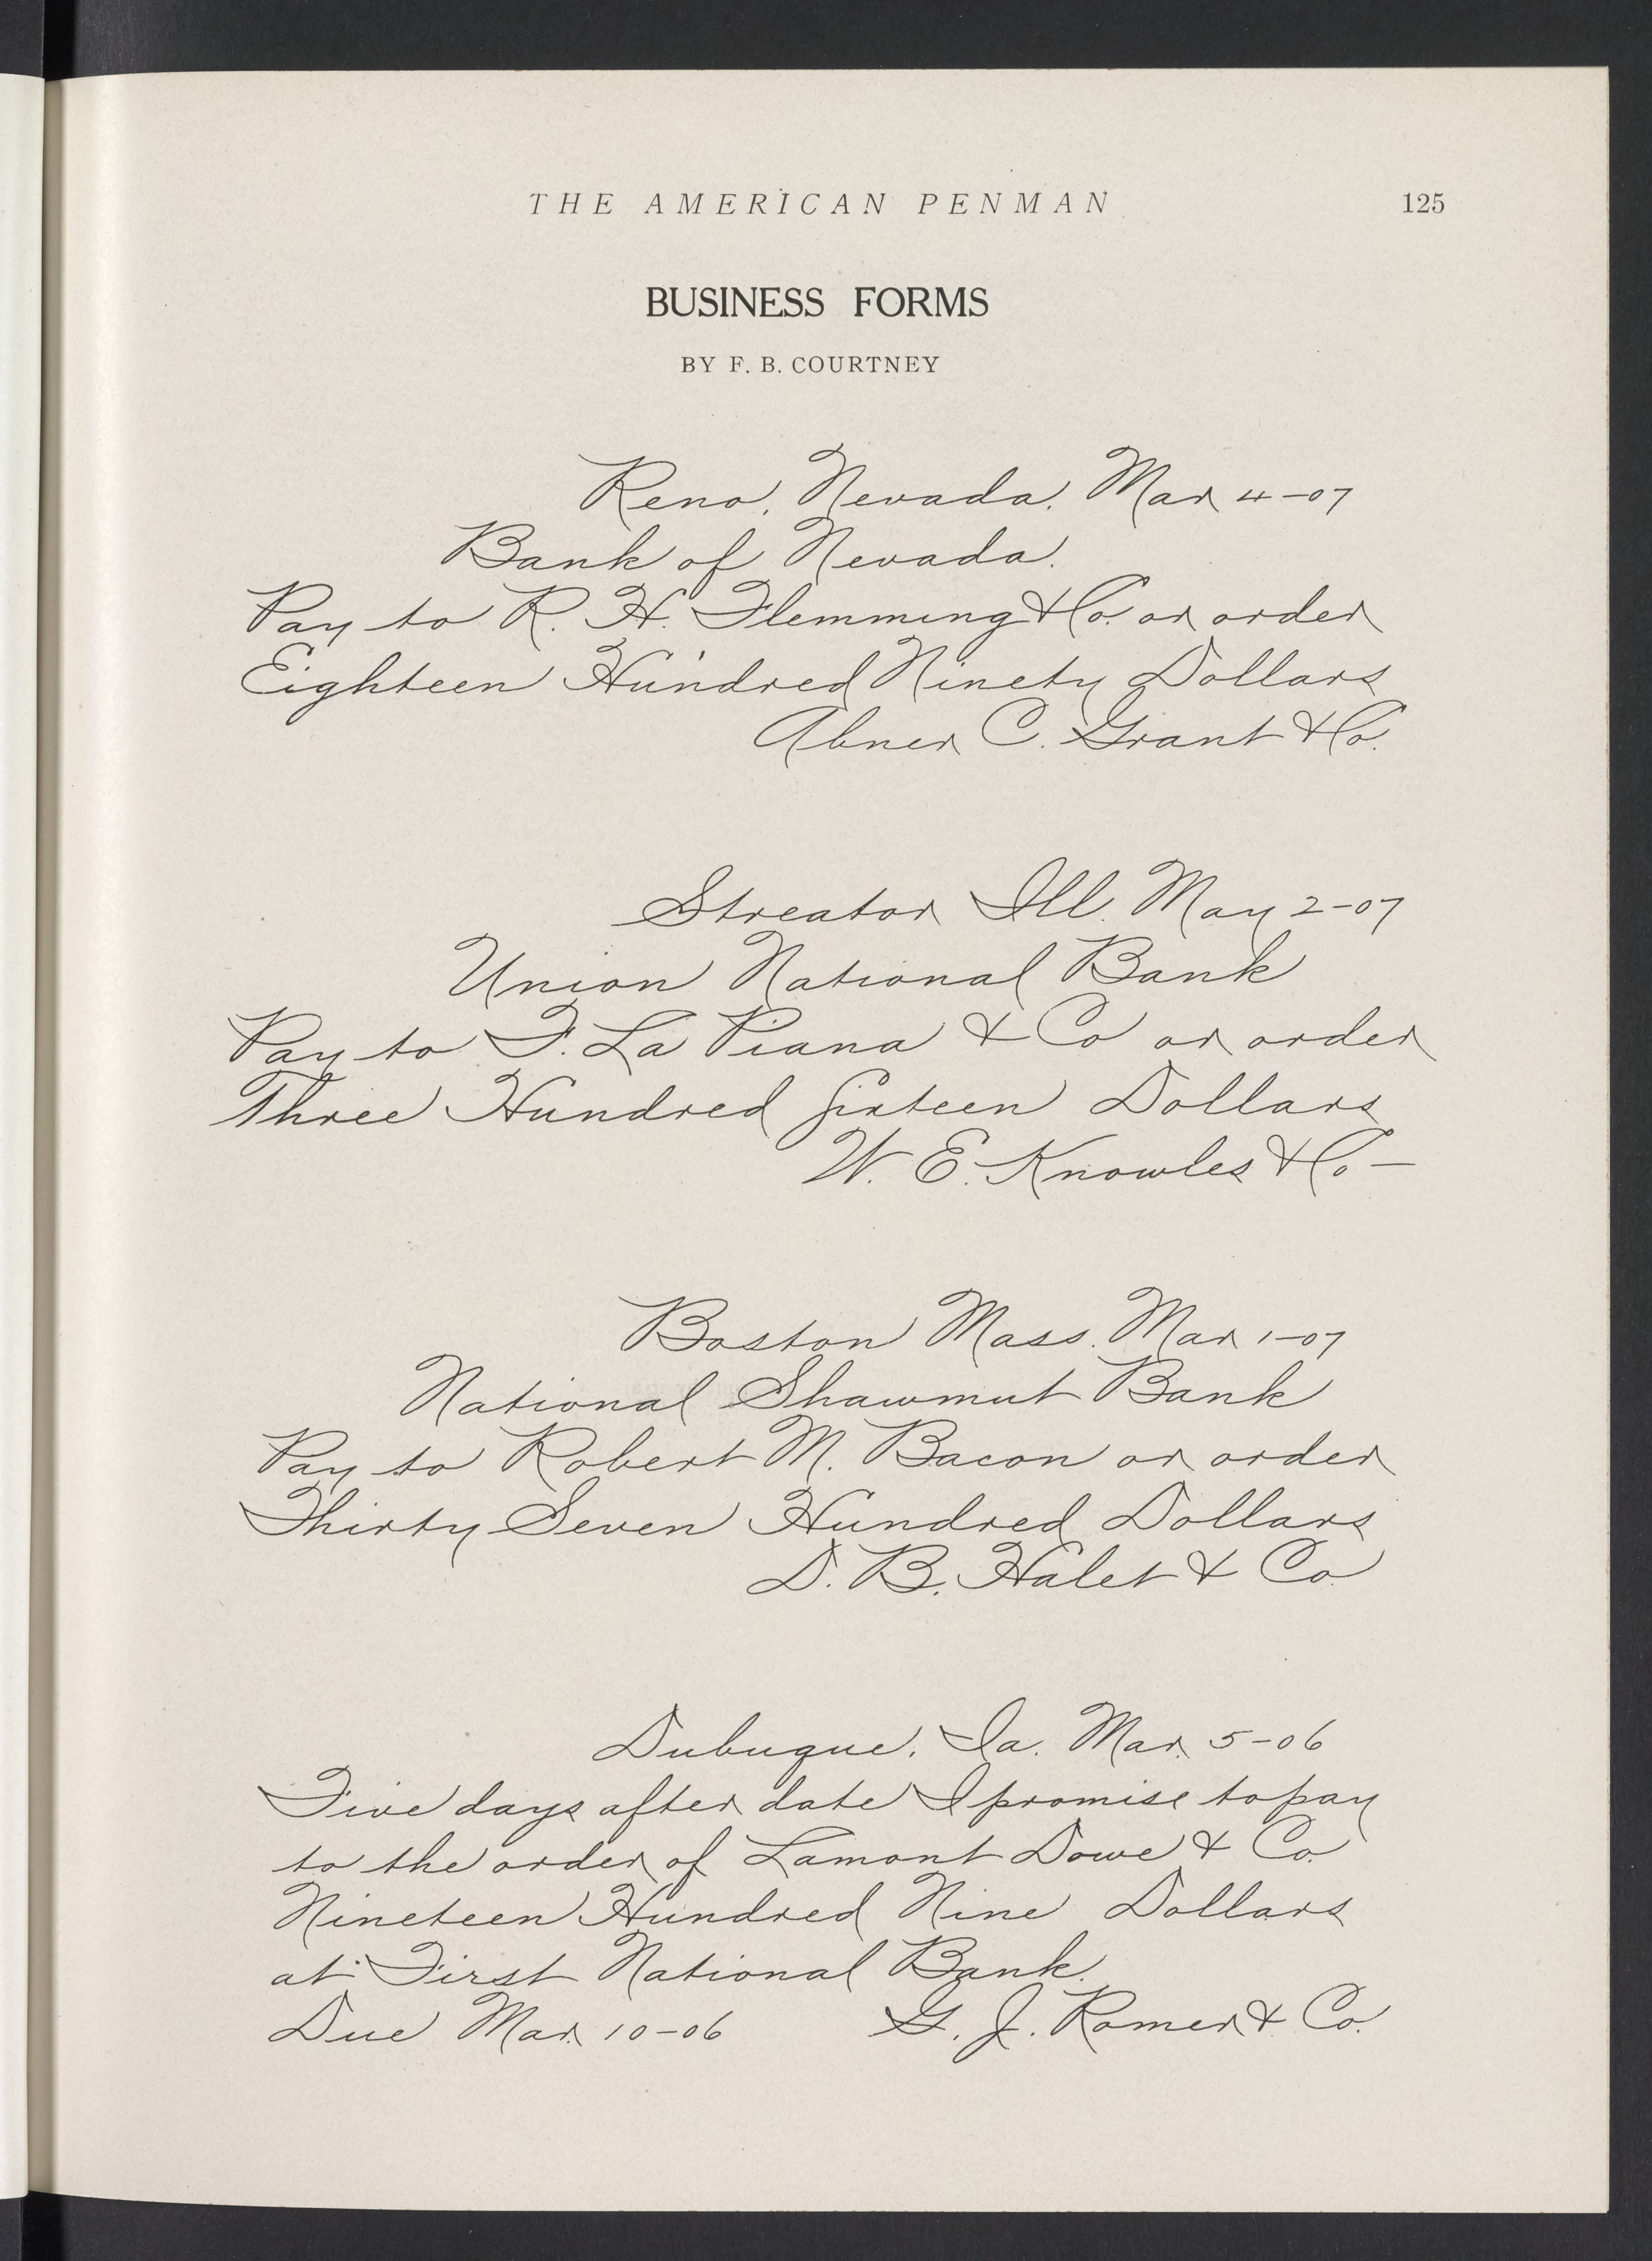 THE AMERICAN PENMAN 125
BUSINESS FORMS
BY F. B. COURTNEY
Reno, Nevada. Mar 4-07
Bank of Nevada.
Pay to R. H. Flemming & Co. or order
Eighteen Hundred Ninety Dollars
Abner C. Grant & Co.
Streator Ill. May 2-07
Union National Bank
Pay to F. La Piana & Co or order
Three Hundred Sixteen Dollars
W. E. Knowles & Co —
Boston Mass. Mar 1-07
National Shawmut Bank
Pay to Robert M. Bacon or order
Thirty Seven Hundred Dollars
D. B. Halet & Co.
Dubuque, Ia. Mar. 5-06
Five days after date I promise to pay
to the order of Lamont Dowe & Co.
Nineteen Hundred Nine Dollars
at First National Bank.
Due Mar. 10-06 G. J. Romer & Co.